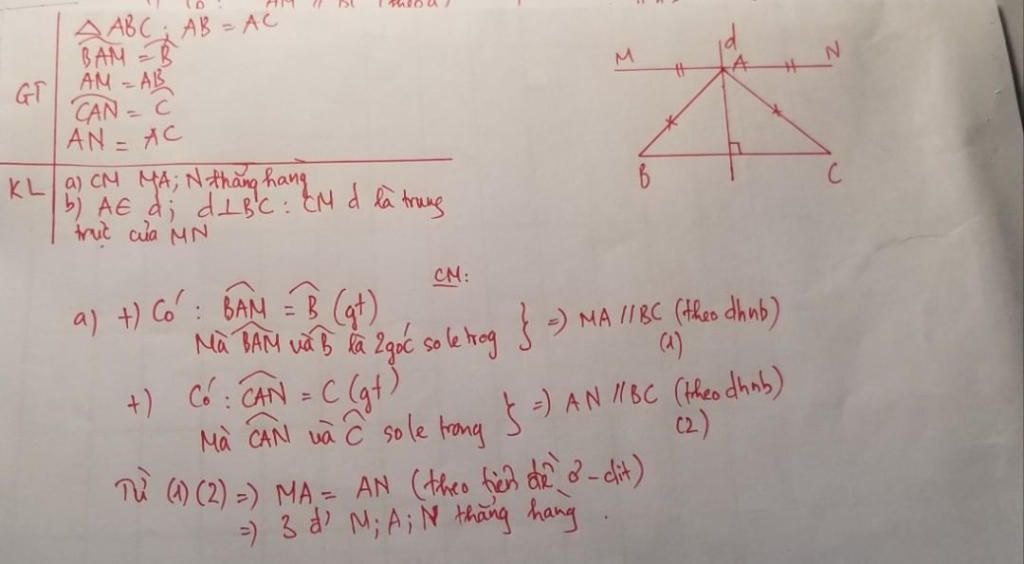 Có: AM // BC (theo a)
△ABC; AB = AC
BAM = B
AM = AB
GT
CAN = C
AN = AC
KL
a) CM MA; N thẳng hang
b) A∈ d; d⊥BC: CM d là trung
trực của MN
d
M
A
N
B
C
CM:
a) +) Có: BAM = B (gt)
Mà BAM và B là 2 góc so le trog } => MA // BC (theo dhnb)
(1)
+) Có: CAN = C (gt)
Mà CAN và C so le trong } => AN // BC (theo dhnb)
(2)
Từ (1) (2) => MA = AN (theo tiên đề ơ-clit)
=> 3 đ' M; A; N thẳng hàng.